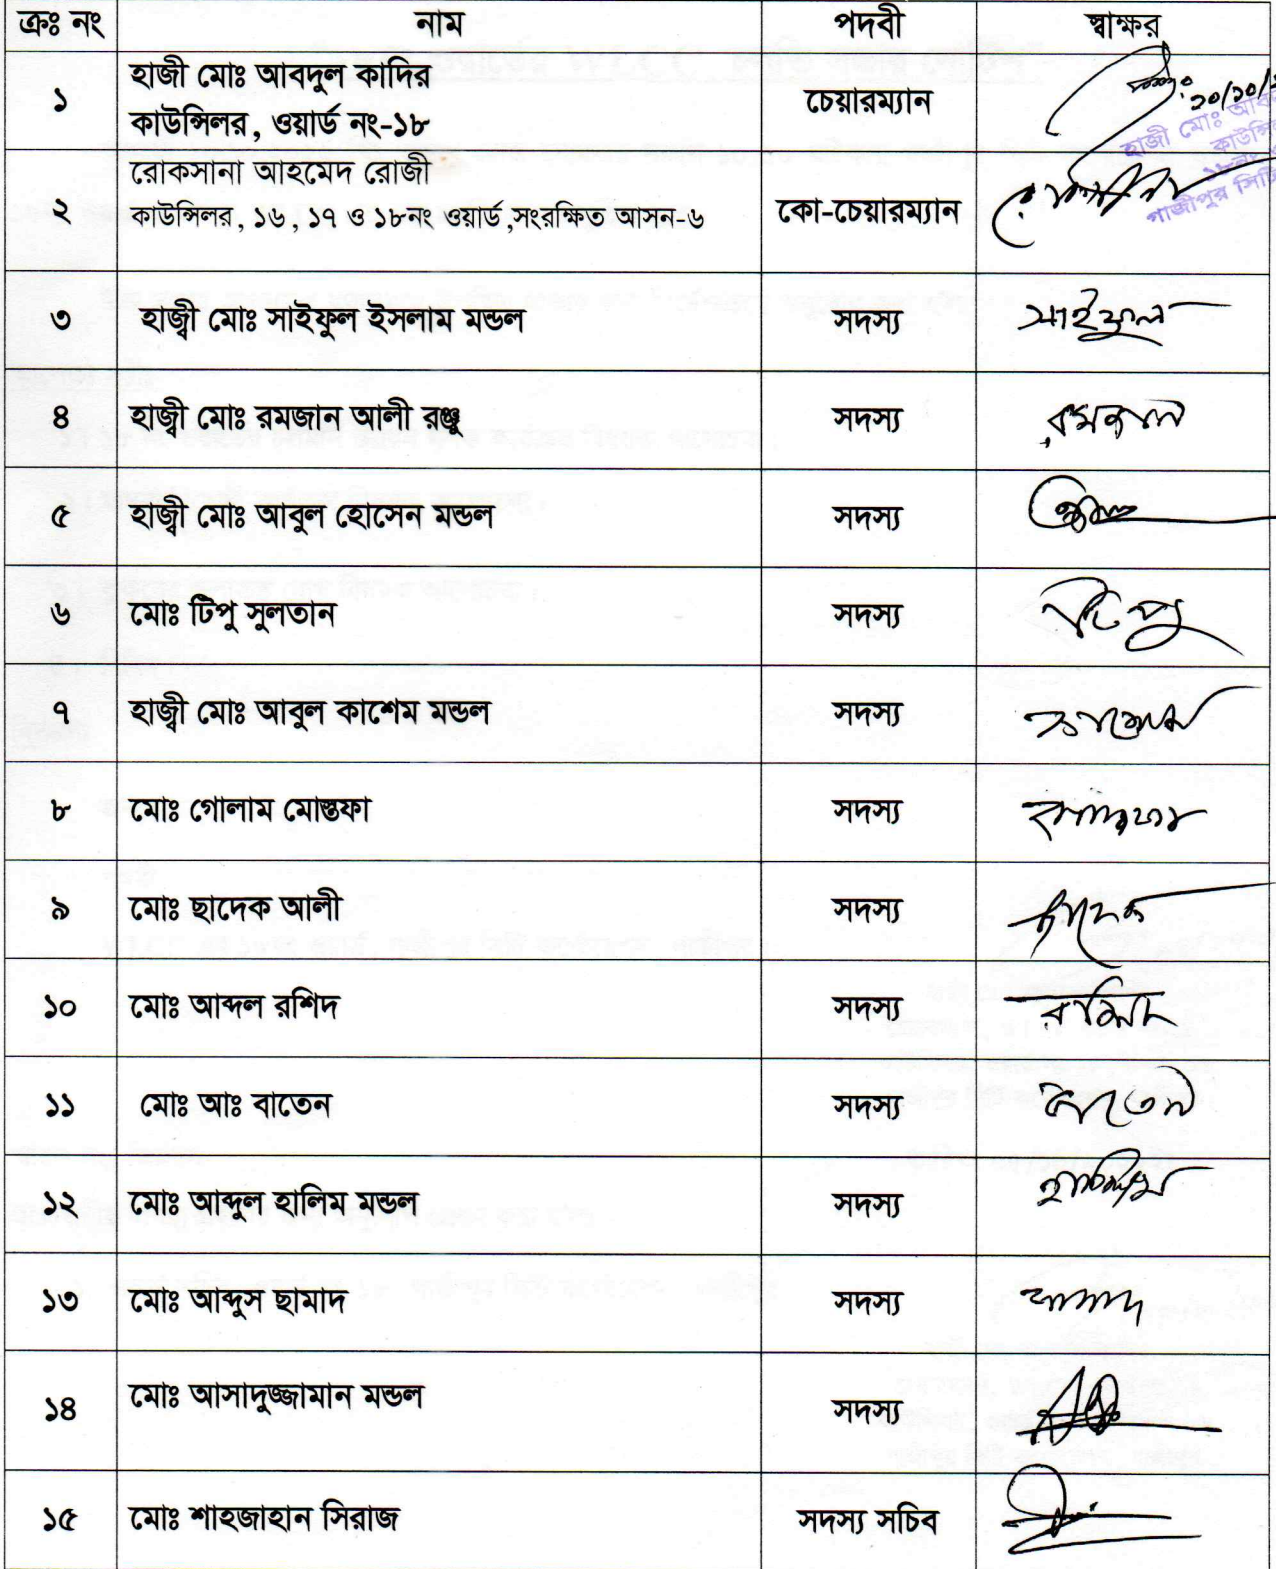 ক্রঃ নং নাম পদবী স্বাক্ষর
১ হাজী মোঃ আবদুল কাদির চেয়ারম্যান ২০/১০/
কাউন্সিলর, ওয়ার্ড নং-১৮
হাজী মোঃ
কাউন্সি
১৮নং
গাজীপুর সিটি
২ রোকসানা আহমেদ রোজী কো-চেয়ারম্যান
কাউন্সিলর, ১৬, ১৭ ও ১৮নং ওয়ার্ড,সংরক্ষিত আসন-৬
৩ হাজ্বী মোঃ সাইফুল ইসলাম মন্ডল সদস্য সাইফুল
৪ হাজ্বী মোঃ রমজান আলী রঞ্জু সদস্য রমজান
৫ হাজ্বী মোঃ আবুল হোসেন মন্ডল সদস্য
৬ মোঃ টিপু সুলতান সদস্য টিপু
৭ হাজ্বী মোঃ আবুল কাশেম মন্ডল সদস্য কাশেম
৮ মোঃ গোলাম মোস্তফা সদস্য
৯ মোঃ ছাদেক আলী সদস্য ছাদেক
১০ মোঃ আব্দল রশিদ সদস্য রশিদ
১১ মোঃ আঃ বাতেন সদস্য বাতেন
১২ মোঃ আব্দুল হালিম মন্ডল সদস্য হালিম
১৩ মোঃ আব্দুস ছামাদ সদস্য ছামাদ
১৪ মোঃ আসাদুজ্জামান মন্ডল সদস্য
১৫ মোঃ শাহজাহান সিরাজ সদস্য সচিব